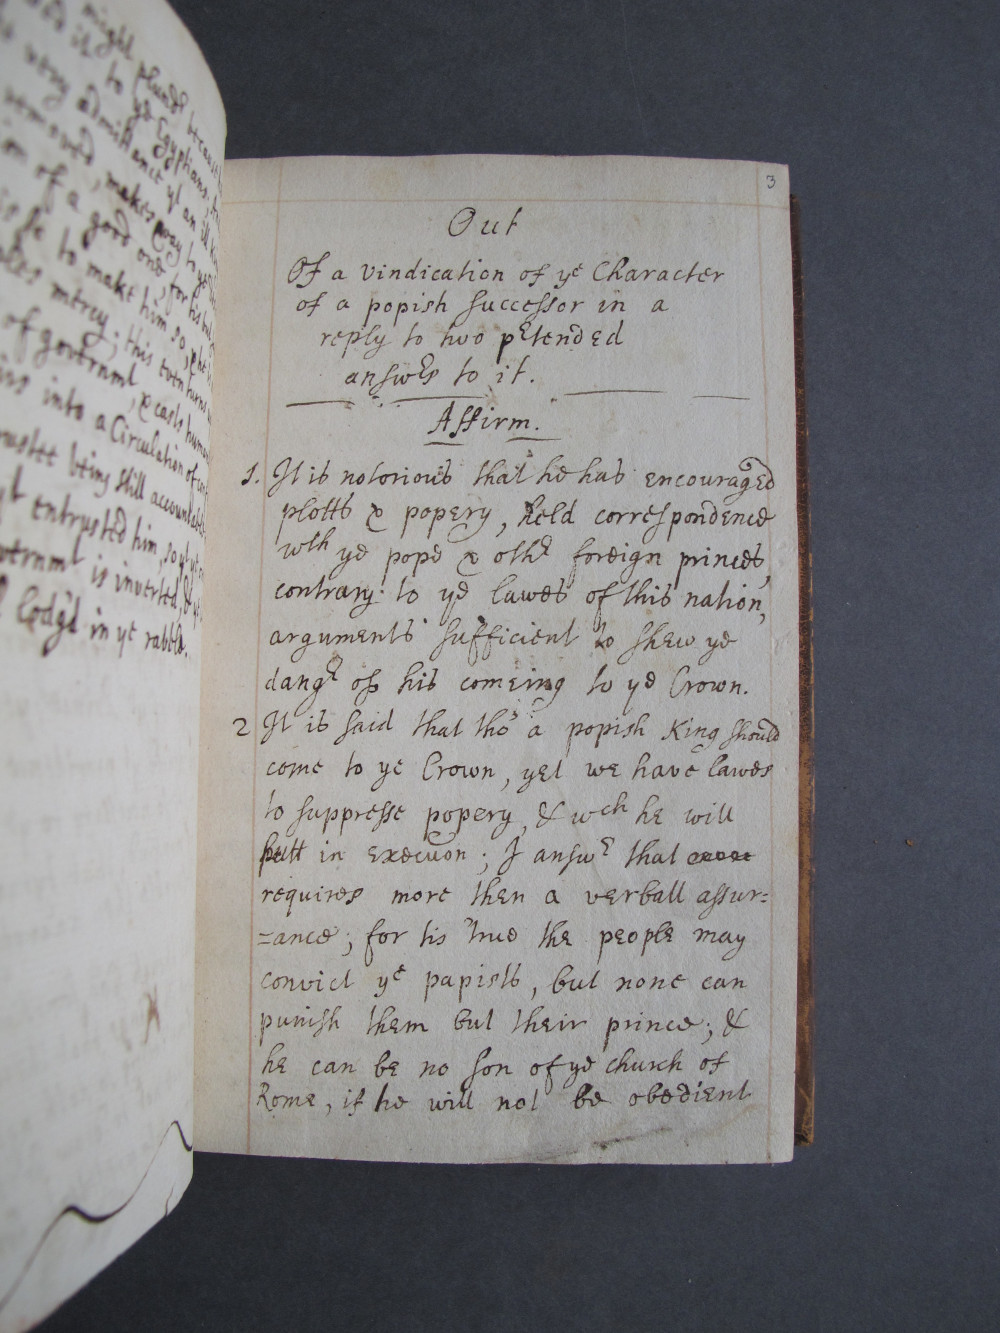 might plund because
to ye Egyptians
very admittance yt an ill
removed, makes way to ye
of a good one, for his
to make him so
mercy; this turns
of governmt, & casts
into a Circulation of
trustee being still accountable
yt entrusted him, so yt
governmt is inverted, & ye
lodg'd in ye rabble.
3
Out
Of a vindication of ye Character
of a popish successor in a
reply to two ptended
answrs to it.
Affirm.
1. It is notorious that he has encouraged
plotts & popery, held correspondence
wth ye pope & othr foreign princes,
contrary to ye lawes of this nation,
arguments sufficient to shew ye
dangr of his comeing to ye Crown.
2 It is said that tho' a popish King should
come to ye Crown, yet we have lawes
to suppresse popery, & wch he will
putt in execution; I answr that
requires more then a verball assur=
=ance; for tis true the people may
convict ye papists, but none can
punish them but their prince; &
he can be no son of ye church of
Rome, if he will not be obedient